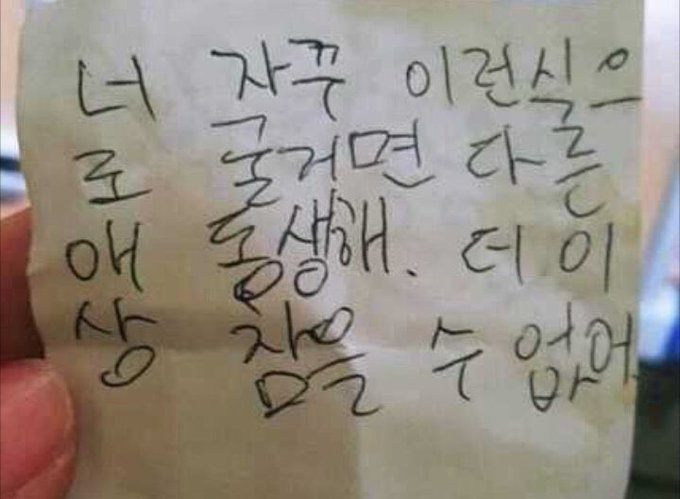 너 자꾸 이런식으
로 굴거면 다른
애 동생해. 더 이
상 참을 수 없어.